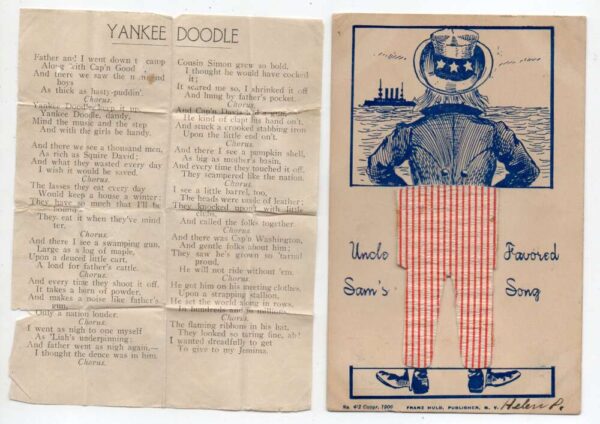 YANKEE DOODLE
Father and I went down t camp
Along with Cap'n Good
And there we saw the n and
boys
As thick as hasty-puddin'.
Chorus.
Yankee Doodle, keep it up,
Yankee Doodle, dandy,
Mind the music and the step
And with the girls be handy.
And there we see a thousand men,
As rich as Squire David;
And what they wasted every day
I wish it would be saved.
Chorus.
The lasses they eat every day
Would keep a house a winter;
They have so much that I'll be
They eat it when they've mind
ter.
Chorus.
And there I see a swamping gun,
Large as a log of maple,
Upon a deuced little cart.
A load for father's cattle.
Chorus.
And every time they shoot it off.
It takes a horn of powder,
And makes a noise like father's
gun,
Only a nation louder.
Chorus.
I went as nigh to one myself
As 'Liah's underpinning;
And father went as nigh again,—
I thought the deuce was in him.
Chorus.
Cousin Simon grew so bold,
I thought he would have cocked
it;
It scared me so, I shrinked it off
And hung by father's pocket.
Chorus.
And Cap'n Davis had a gun,
He kind of clapt his hand on't,
And stuck a crooked stabbing iron
Upon the little end on't.
Chorus.
And there I see a pumpkin shell,
As big as mother's basin,
And every time they touched it off,
They scampered like the nation.
Chorus.
I see a little barrel, too,
The heads were made of leather;
They knocked upon't with little
clubs,
And called the folks together.
Chorus.
And there was Cap'n Washington,
And gentle folks about him;
They saw he's grown so 'tarnal
proud.
He will not ride without 'em.
Chorus.
He got him on his meeting clothes.
Upon a strapping stallion,
He set the world along in rows,
In hundreds and in millions.
Chorus.
The flaming ribbons in his hat,
They looked so taring fine, ah!
I wanted dreadfully to get
To give to my Jemima.
Uncle Favored
Sam's Song
No. 412 Copyr. 1906 FRANZ HULD, PUBLISHER, N. Y. Helen P.